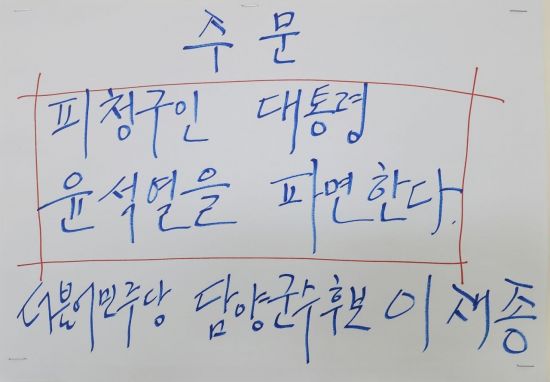 주 문
피청구인 대통령
윤석열을 파면한다.
더불어민주당 담양군수후보 이재종